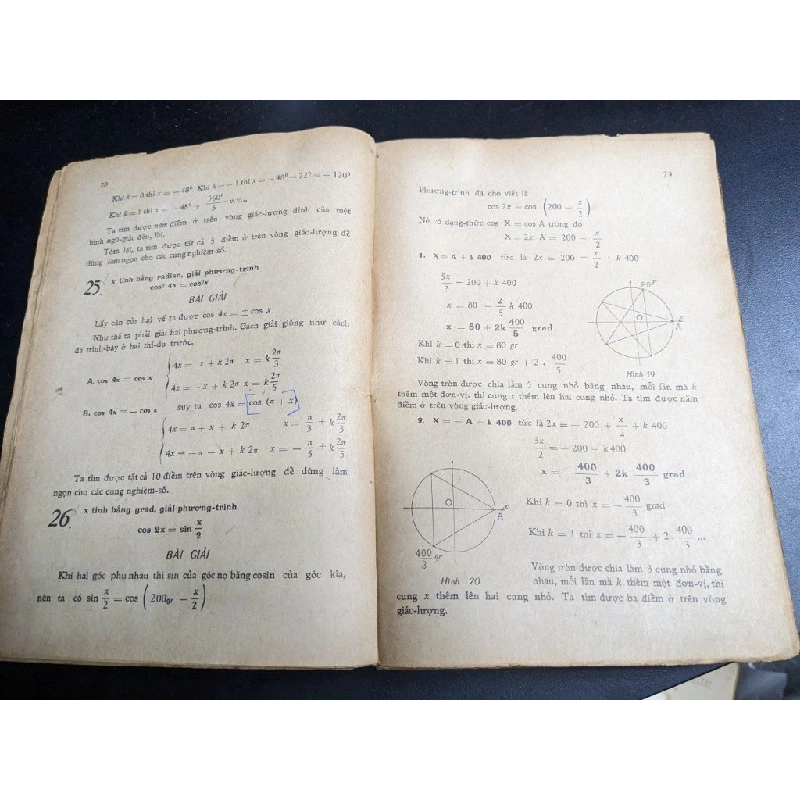 Khi k = 0 thì x = − 48°. Khi k = − 1 thì x = − 48° − 72° = − 120°
Khi k = 1 thì x = − 48° + 360°/5 = v.v...
Ta tìm được năm điểm ở trên vòng giác-lượng đỉnh của một
hình ngũ-giác đều, lồi.
Tóm lại, ta tìm được tất cả 5 điểm ở trên vòng giác-lượng để
dùng làm ngọn cho các cung nghiệm-số.
25. x tính bằng radian, giải phương-trình
cos² 4x = cos²x
BÀI GIẢI
Lấy căn của hai vế ta được cos 4x = ± cos x
Như thế ta phải giải hai phương-trình. Cách giải giống như cách
đã trình-bày ở hai thí-dụ trước.
A. cos 4x = cos x
4x = x + k 2π x = k 2π/3
4x = − x + k 2π x = k 2π/5
B. cos 4x = − cos x suy ta cos 4x = cos (π + x)
4x = π + x + k 2π x = π/3 + k 2π/3
4x = − π − x + k 2π x = − π/5 + k 2π/5
Ta tìm được tất cả 10 điểm trên vòng giác-lượng để dùng làm
ngọn của các cung nghiệm-số.
26. x tính bằng grad, giải phương-trình
cos 2x = sin x/2
BÀI GIẢI
Khi hai góc phụ nhau thì sin của góc nọ bằng cosin của góc kia,
nên ta có sin x/2 = cos (200gr − x/2)
79
Phương-trình đã cho viết là
cos 2x = cos (200 − x/2)
Nó có dạng-thức cos X = cos A trong đó
X = 2x A = 200 − x/2
1. X = A + k 400 tức là 2x = 200 − x/2 + k 400
5x/2 = 200 + k 400
x = 80 + 2/5 k 400
x = 80 + 2k 400/5 grad
Khi k = 0 thì x = 80 gr
Khi k = 1 thì x = 80 gr + 2 . 400/5
80gr
O
A
Hình 19
Vòng tròn được chia làm 5 cung nhỏ bằng nhau, mỗi lần mà k
thêm một đơn-vị, thì cung x thêm lên hai cung nhỏ. Ta tìm được năm
điểm ở trên vòng giác-lượng.
2. X = − A + k 400 tức là 2x = − 200 + x/2 + k 400
3x/2 = − 200 + k 400
x = − 400/3 + 2k 400/3 grad
Khi k = 0 thì x = − 400/3 grad
Khi k = 1 thì x = − 400/3 + 2 . 400/3 ...
O
A
400/3 gr
Hình 20
Vòng tròn được chia làm 3 cung nhỏ bằng
nhau, mỗi lần mà k thêm một đơn-vị, thì
cung x thêm lên hai cung nhỏ. Ta tìm được ba điểm ở trên vòng
giác-lượng.